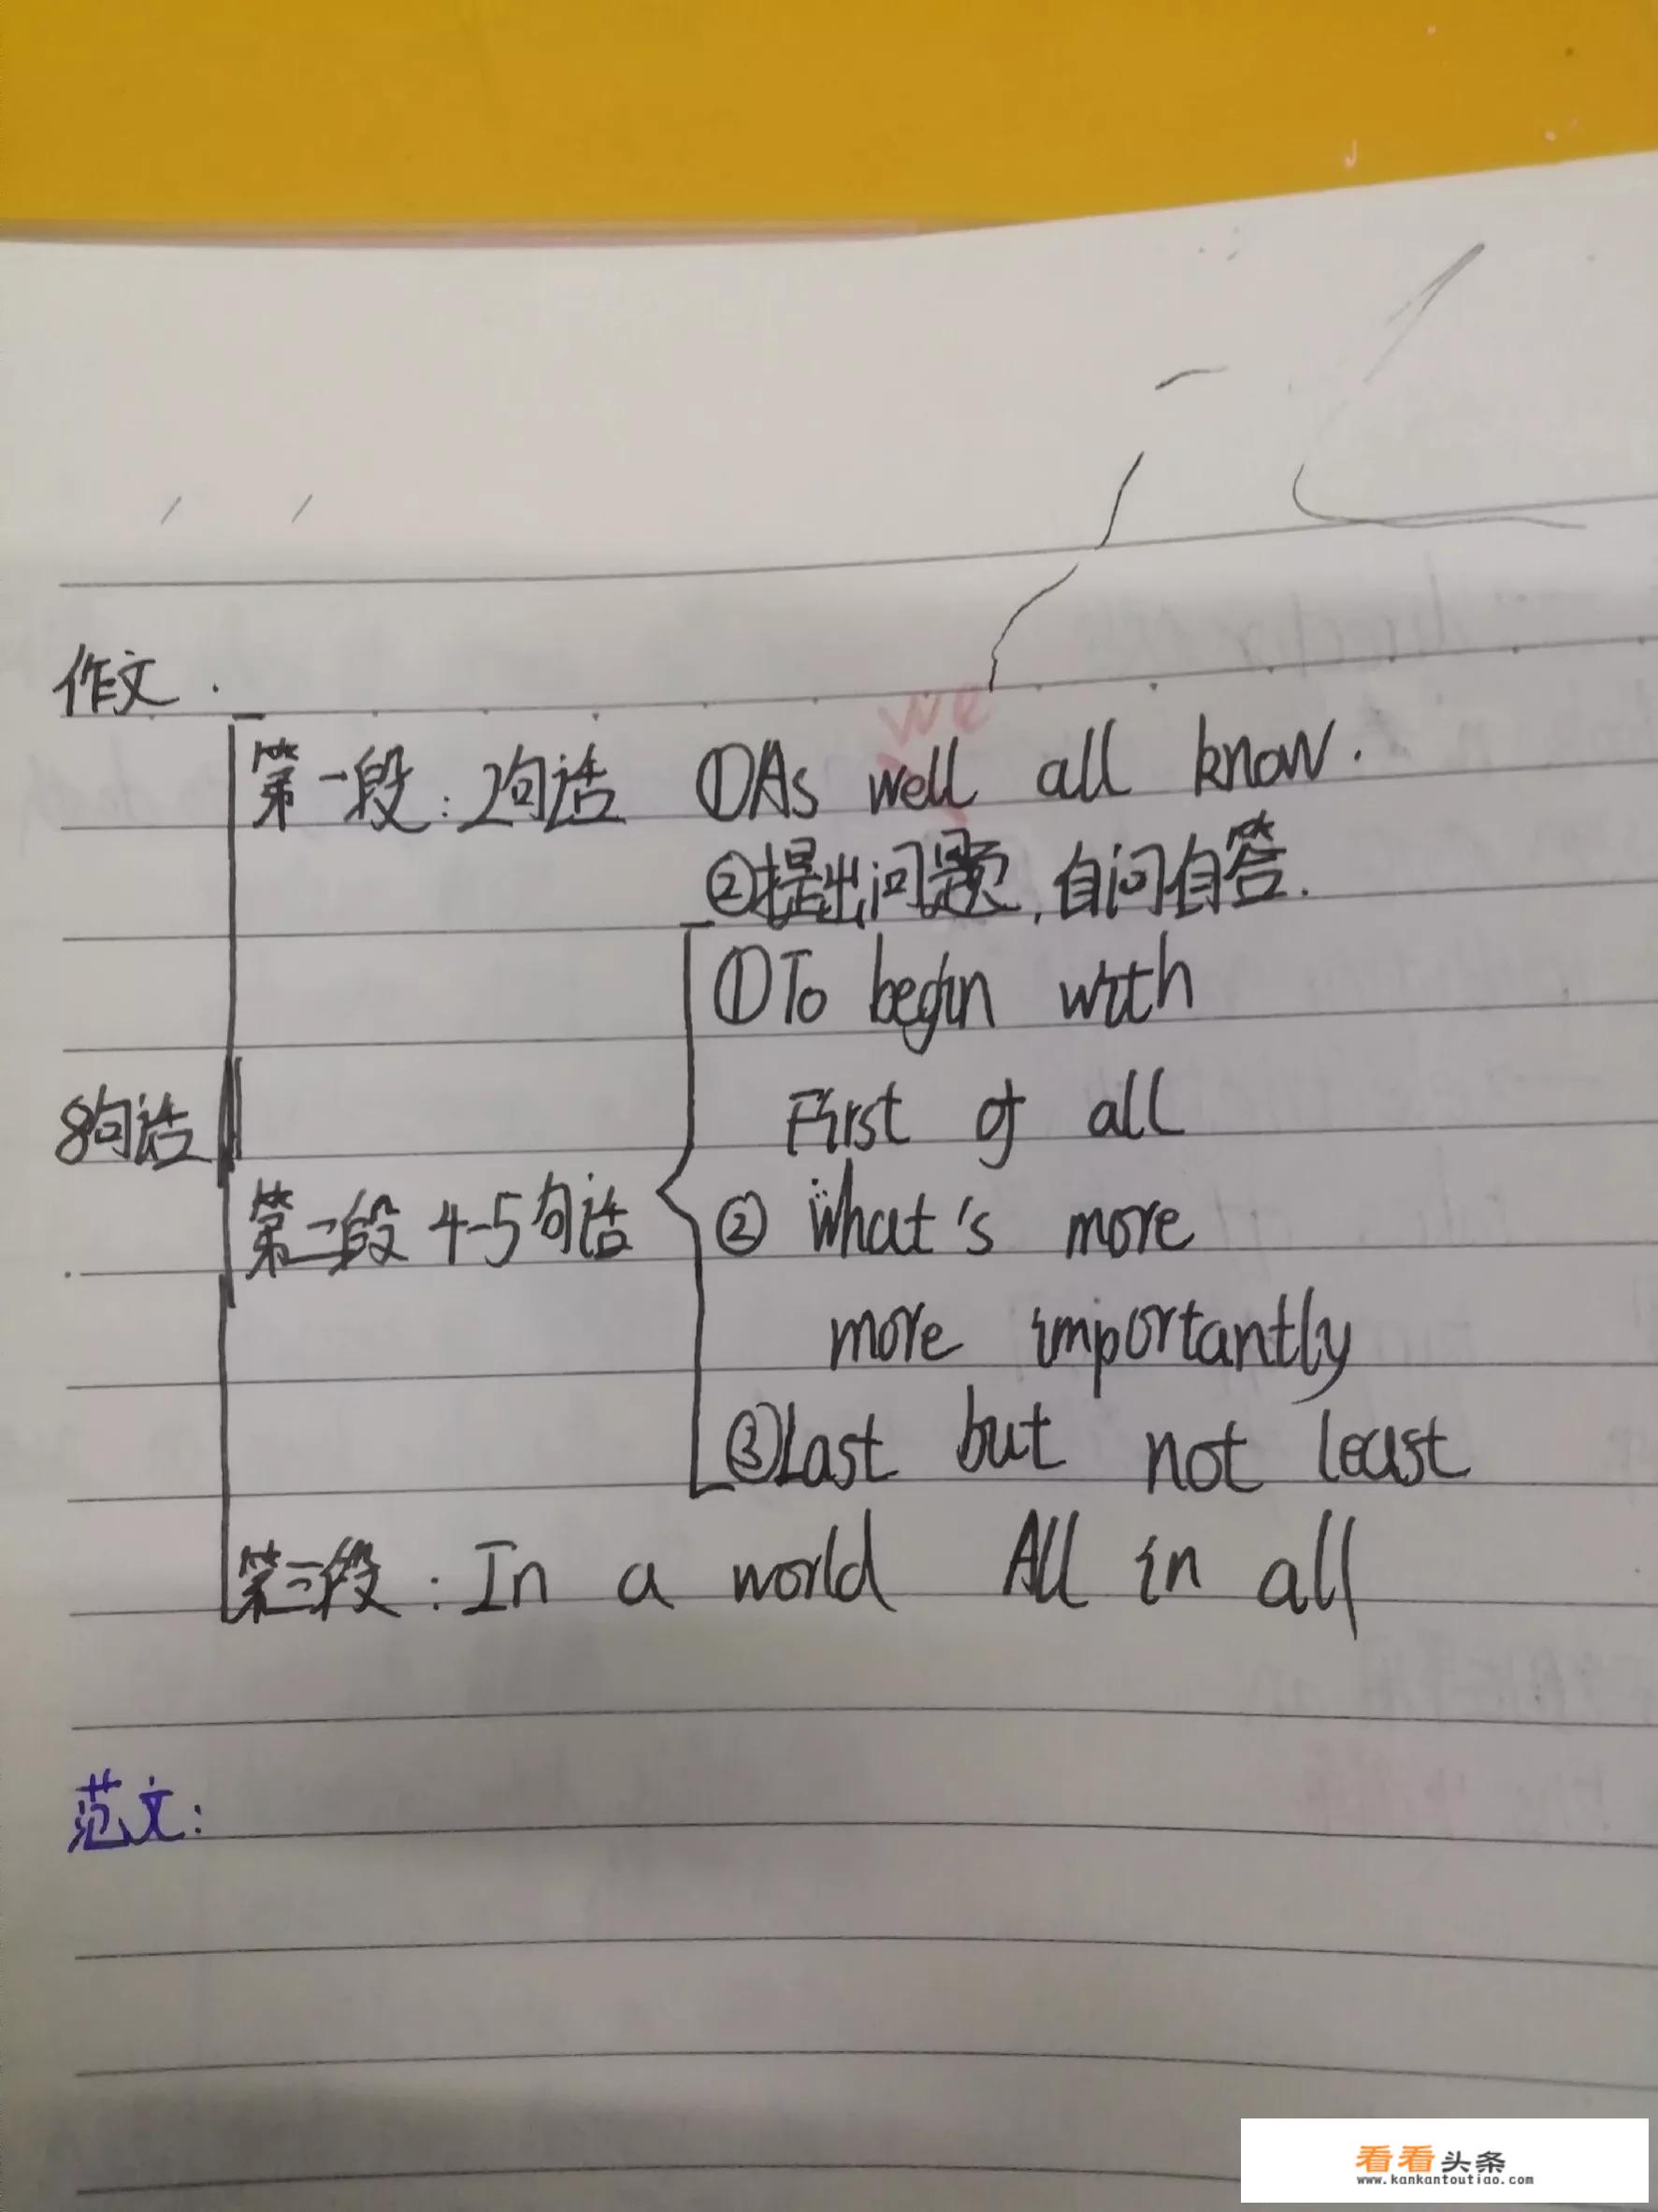 作文.
we
第一段:2句话 ①As well all know.
②提出问题,自问自答.
①To begin with
First of all
8句话
第二段 4-5句话 ② What's more
more importantly
③Last but not least
第三段:In a world All in all
范文:
看看头条
www.kankantoutiao.com